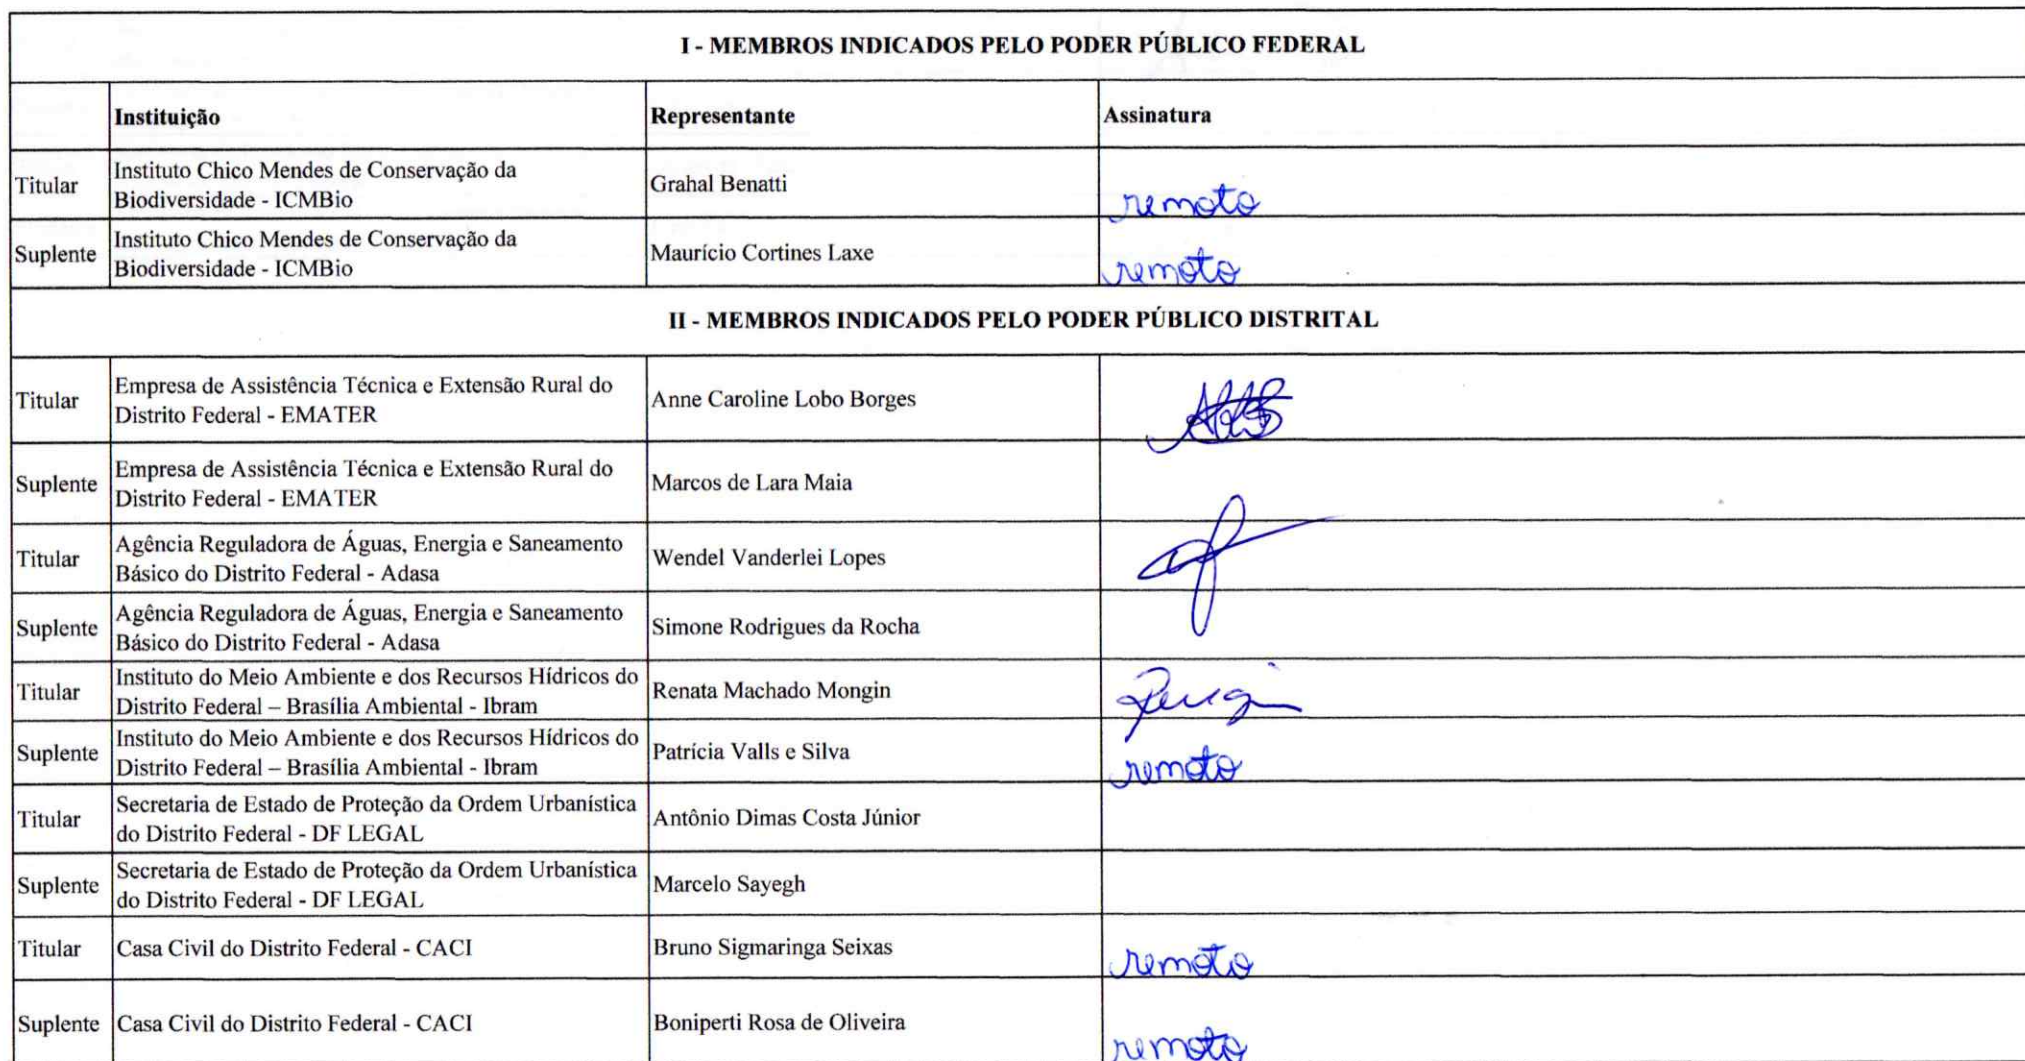 I - MEMBROS INDICADOS PELO PODER PÚBLICO FEDERAL
Instituição Representante Assinatura
Titular Instituto Chico Mendes de Conservação da
Biodiversidade - ICMBio Grahal Benatti remoto
Suplente Instituto Chico Mendes de Conservação da
Biodiversidade - ICMBio Maurício Cortines Laxe remoto
II - MEMBROS INDICADOS PELO PODER PÚBLICO DISTRITAL
Titular Empresa de Assistência Técnica e Extensão Rural do
Distrito Federal - EMATER Anne Caroline Lobo Borges
Suplente Empresa de Assistência Técnica e Extensão Rural do
Distrito Federal - EMATER Marcos de Lara Maia
Titular Agência Reguladora de Águas, Energia e Saneamento
Básico do Distrito Federal - Adasa Wendel Vanderlei Lopes
Suplente Agência Reguladora de Águas, Energia e Saneamento
Básico do Distrito Federal - Adasa Simone Rodrigues da Rocha
Titular Instituto do Meio Ambiente e dos Recursos Hídricos do
Distrito Federal – Brasília Ambiental - Ibram Renata Machado Mongin
Suplente Instituto do Meio Ambiente e dos Recursos Hídricos do
Distrito Federal – Brasília Ambiental - Ibram Patrícia Valls e Silva remoto
Titular Secretaria de Estado de Proteção da Ordem Urbanística
do Distrito Federal - DF LEGAL Antônio Dimas Costa Júnior
Suplente Secretaria de Estado de Proteção da Ordem Urbanística
do Distrito Federal - DF LEGAL Marcelo Sayegh
Titular Casa Civil do Distrito Federal - CACI Bruno Sigmaringa Seixas remoto
Suplente Casa Civil do Distrito Federal - CACI Boniperti Rosa de Oliveira remoto